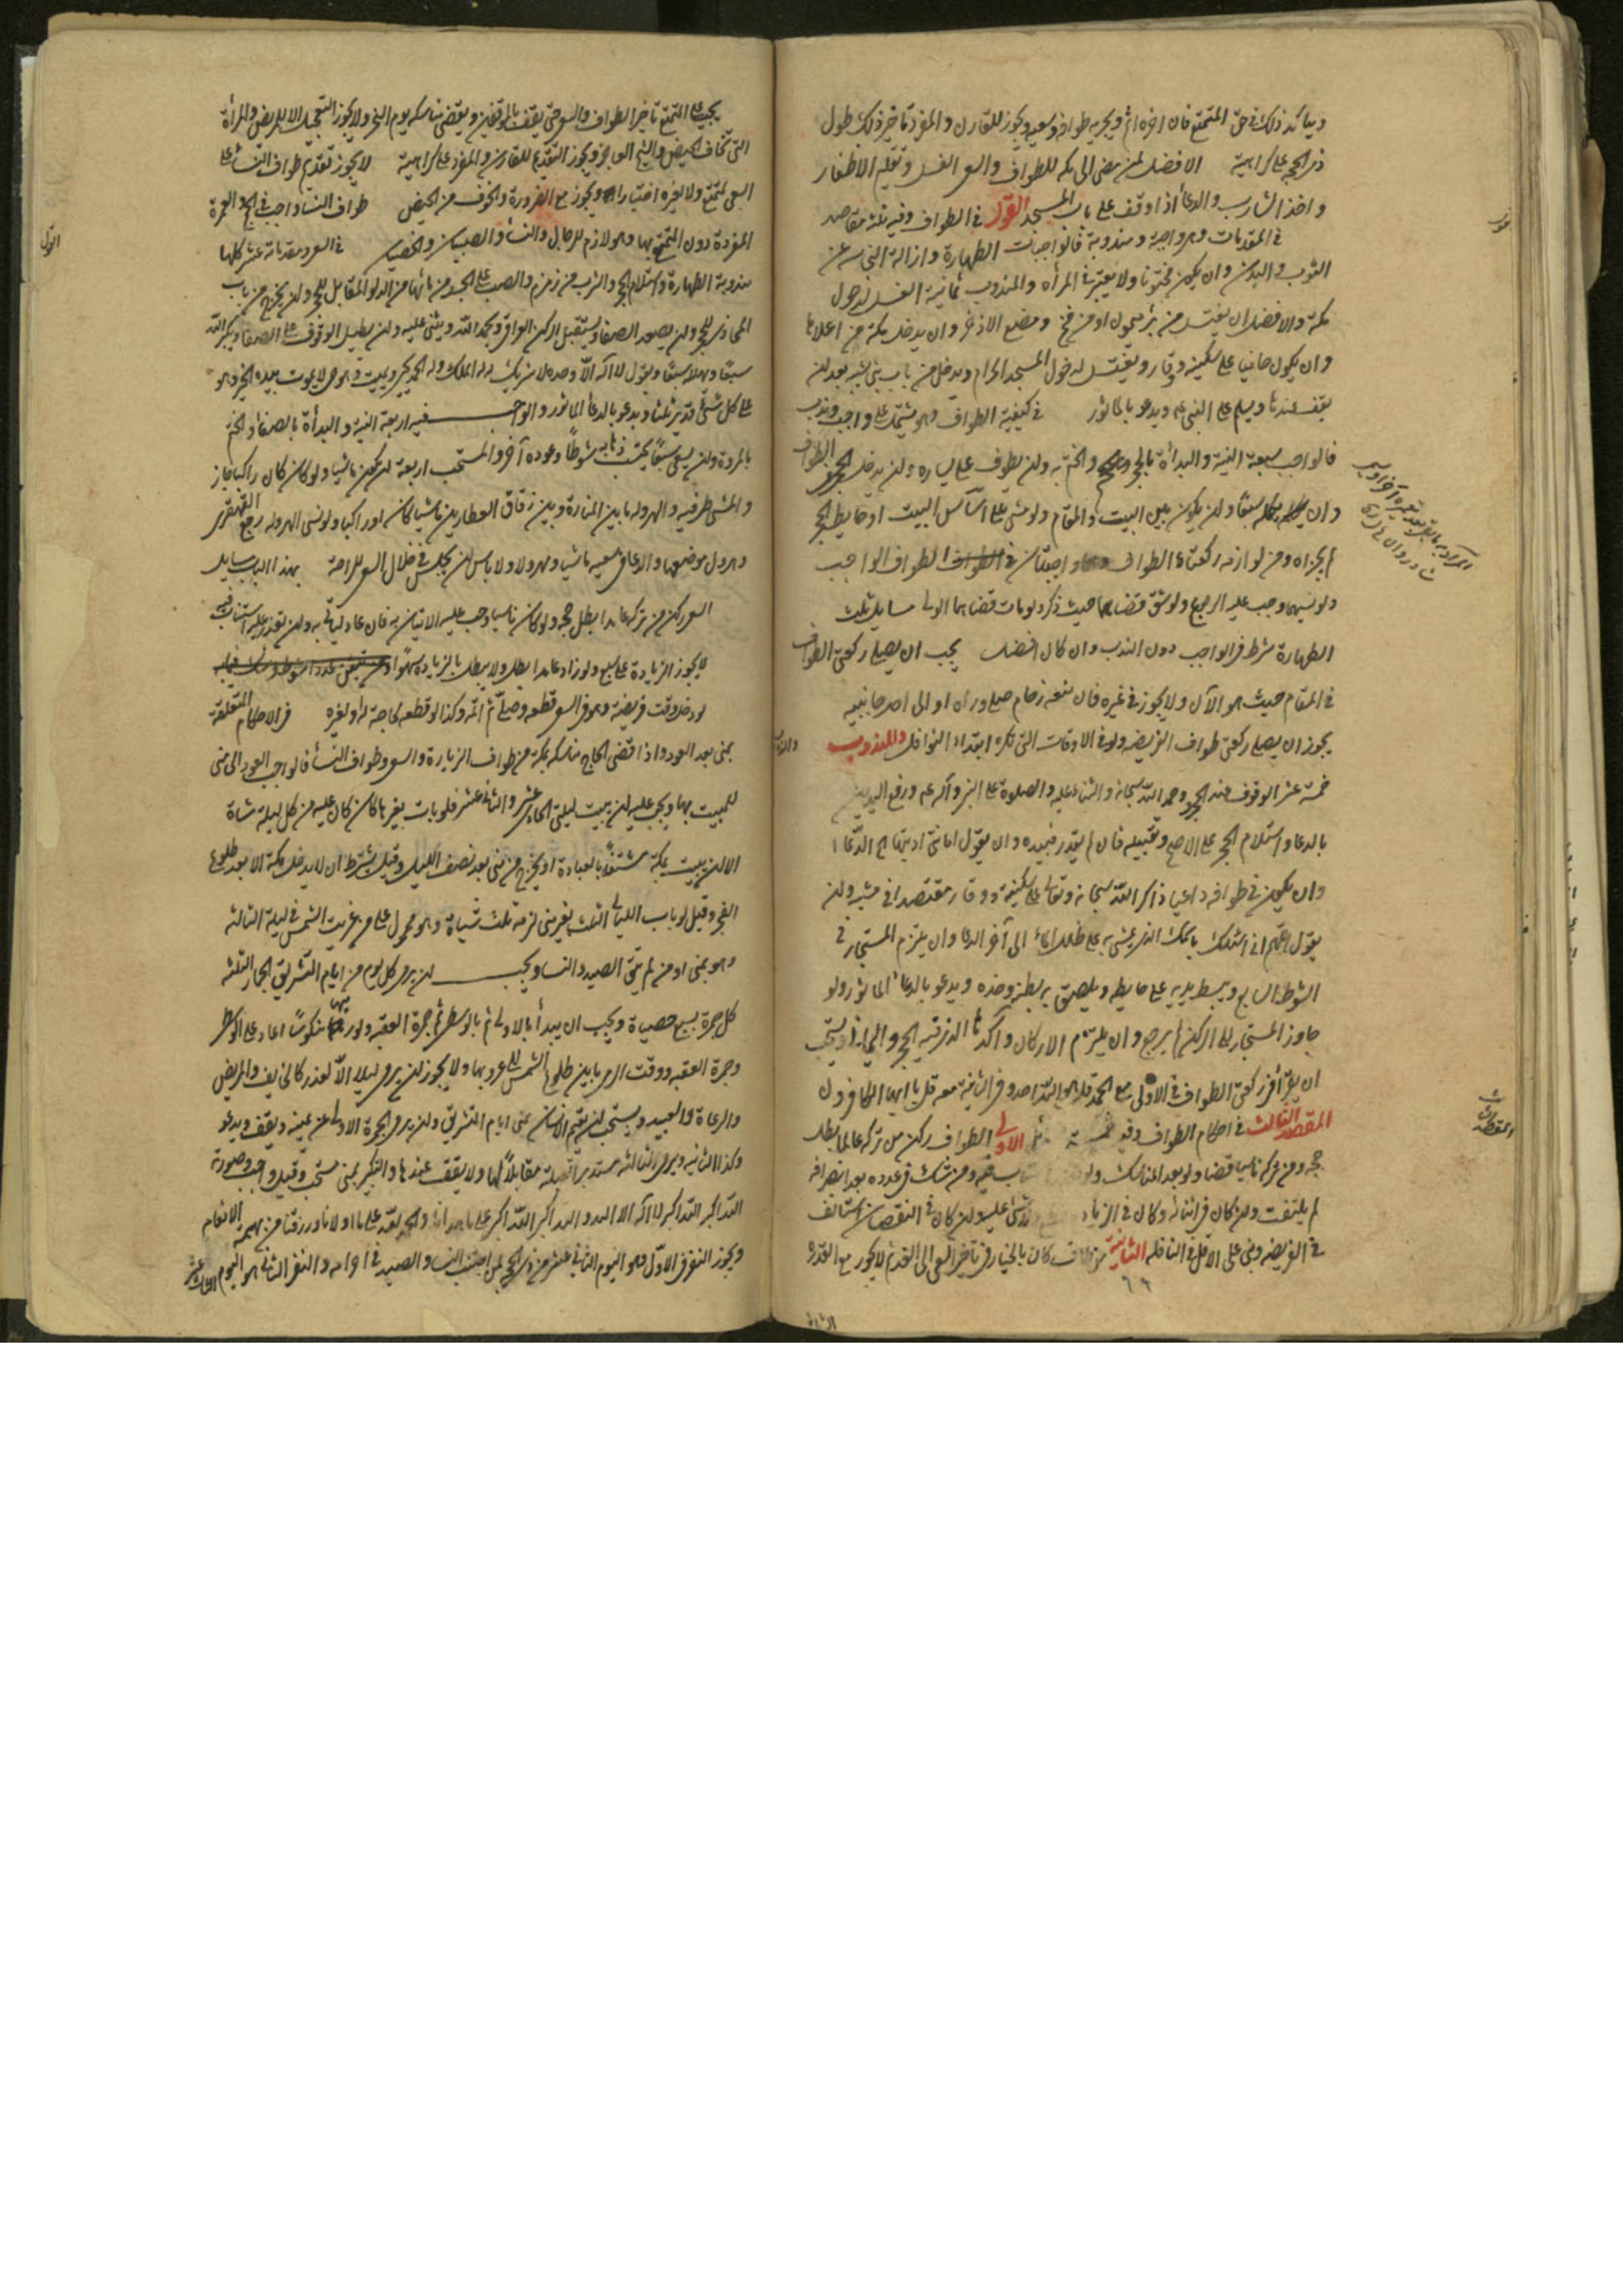 ويتأكد ذلك في حق المتمتع فان اخره اثم ويجزيه طوافه وسعيه ويجوز للقارن والمفرد تأخير ذلك طول
ذي الحجة على كراهية الافضل لمن مضى الى مكه للطواف والسعي الغسل وتقليم الاظفار
واخذ الشارب والدعأ اذا وقف على باب المسجد القول في الطواف وفيه ثلثة مقاصد
في المقدمات وهي واجبة ومندوبة فالواجبات الطهارة وازالة النجاسه عن
الثوب والبدن وان يكون مختونا ولا يعتبر في المرأه والمندوب ثمانية الغسل لدخول
مكة والافضل ان يغتسل من بئر ميمون او من فخ ومضغ الاذخر وان يدخل مكة من اعلاها
وان يكون حافيا على سكينه ووقار ويغتسل لدخول المسجد الحرام ويدخل من باب بني شيبه بعد ان
يقف عندها ويسلم على النبي عم ويدعو بالماثور في كيفية الطواف وهو يشتمل على واجب وندب
فالواجب سبعة النية والبدأة بالحجر والختم به وان يطوف على يساره وان يدخل الحجر في الطواف
وان يكمله سبعًا وان يكون بين البيت والمقام ولو مشى على اساس البيت او حايط الحجر
لم يجزه ومن لوازمه ركعتا الطواف وهما واجبتان في الطواف الواجب
ولو نسيهما وجب عليه الرجوع ولو شق قضاهما حيث ذكر ولو مات قضاهما الولى مسايل ثلث
الطهارة شرط في الواجب دون الندب وان كان افضل يجب ان يصلي ركعتي الطواف
في المقام حيث هو الآن ولا يجوز في غيره فان منعه زحام صلى وراه او الى احد جانبيه
يجوز ان يصلي ركعتي طواف الفريضه ولو في الاوقات التي تكره ابتداء النوافل والمندوب
خمسة عشر الوقوف عند الحجر وحمد الله سبحانه والثناء عليه والصلوة على النبي وآله عم ورفع اليدين
بالدعا واستلام الحجر على الاصح وتقبيله فان لم يقدر فبيده وان يقول امانتي اديتها الى الدعا
وان يكون في طوافه داعيا ذاكر الله سبحانه وتعالى على سكينة ووقار مقتصدا في مشيه وان
يقول اللهم اني اسئلك باسمك الذي يمشي به على ظلل الماء الى آخر الدعا وان يلتزم المستجار في
الشوط السابع ويبسط يديه على حايطه ويلصق به بطنه وخده ويدعو بالدعاء الماثور ولو
جاوز المستجار الى الركن لم يرجع وان يلتزم الاركان وآكدها الذي فيه الحجر واليماني ويستحب
ان يقرأ في ركعتي الطواف في الاولى مع الحمد قل هو الله احد وفي الثانية معه قل يا ايها الكافرون
المقصد الثالث في احكام الطواف وفيه الاولى الطواف ركن من تركه عالما بطل
حجه ومن تركه ناسيا قضاه ولو بعد المناسك ولو فيه ومن شك في عدده بعد انصرافه
لم يلتفت وان كان في اثنائه وكان في الزياده فلا شئ عليه وان كان في النقصان استانف
في الفريضه وبنى على الاقل في النافله الثانية من طاف كان بالخيار في تأخير السعي الى الغد ثم لا يجوز مع القدرة
يجب على المتمتع تأخير الطواف والسعي حتى يقف بالموقفين ويقضي مناسكه يوم النحر ولا يجوز التعجيل الا للمريض والمرأة
التي تخاف الحيض والشيخ العاجز ويجوز التقديم للقارن والمفرد على كراهية لا يجوز تقديم طواف النسا على
السعي لمتمتع ولا لغيره اختيارا ويجوز مع الضرورة والخوف من الحيض طواف النسا واجب في الحج والعمرة
المفردة دون المتمتع بها وهو لازم للرجال والنسأ والصبيان والخصيان في السعي ومقدماته عشر كلها
مندوبة الطهارة واستلام الحجر والشرب من زمزم والصب على الجسد من مائها من الدلو المقابل للحجر وان يخرج من باب
المحاذي للحجر وان يصعد الصفا ويستقبل الركن العراقي ويحمد الله ويثني عليه وان يطيل الوقوف على الصفا ويكبر الله
سبعًا ويهلله سبعًا ويقول لا اله الا الله وحده لا شريك له له الملك وله الحمد يحيي ويميت وهو حي لا يموت بيده الخير وهو
على كل شئ قدير ثلثا ويدعو بالدعأ الماثور والواجب فيه اربعة النية والبدأة بالصفا والختم
بالمروة وان يسعى سبعًا يحتسب ذهابه شوطًا وعوده آخر والمستحب اربعة ان يكون ماشيا ولو كان راكبا جاز
والمشي طرفيه والهروله ما بين المنارة وبين زقاق العطارين ماشيا كان او راكبا ولو نسي الهروله رجع القهقرى
وهرول موضعها والدعا في سعيه ماشيا ومهرولا ولا باس ان يجلس في خلال السعي للراحة بهذا الباب مسايل
السعي ركن من تركه عامدا بطل حجه ولو كان ناسيا وجب عليه الاتيان به فان عاد لياتي به وان تعذر عليه استناب فيه
لا يجوز الزيادة على سبع ولو زاد عامدا بطل ولا يبطل بالزياده سهوًا
لو دخل وقت فريضة وهو في السعي قطعه وصلى ثم اتمه وكذا لو قطعه لحاجة له او لغيره في الاحكام المتعلقة
بمنى بعد العود واذا قضى الحاج مناسكه بمكة من طواف الزيارة والسعي وطواف النسأ فالواجب العود الى منى
للمبيت بها ويجب عليه ان يبيت ليلتي الحادي عشر والثاني عشر فلو بات بغيرها كان عليه من كل ليلة شاة
الا ان يبيت بمكة مشتغلًا بالعبادة او يخرج من منى بعد نصف الليل وقيل بشرط ان لا يدخل مكة الا بعد طلوع
الفجر وقيل لو بات الليالي الثلث بغير منى لزمه ثلث شياة وهو محمول على من غربت الشمس في ليلة الثالثه
وهو بمنى او من لم يتق الصيد والنسا ويجب ان يرمي كل يوم من ايام التشريق الجمار الثلثه
كل جمرة بسبع حصياة ويجب ان يبدأ بالاولى ثم بالوسطى ثم جمرة العقبه ولو رماها منكوسًا اعاد على الوسطى
وجمرة العقبه ووقت الرمي ما بين طلوع الشمس الى غروبها ولا يجوز ان يرمي ليلا الا لعذر كالخايف والمريض
والرعاة والعبيد ويستحب ان يقيم الانسان بمنى ايام التشريق وان يرمي الجمرة الاولى عن يمينه ويقف ويدعو
وكذا الثانيه ويرمي الثالثه مستدبر القبلة مقابلًا لها ولا يقف عندها والتكبير بمنى مستحب وقيل واجب وصورته
الله اكبر الله اكبر لا اله الا الله والله اكبر الله اكبر على ما هدانا والحمد لله على ما اولانا ورزقنا من بهيمة الانعام
ويجوز النفر في الاول وهو اليوم الثاني عشر من ذي الحجة لمن اجتنب النسا والصيد في احرامه والنفر الثاني هو اليوم الثالث عشر